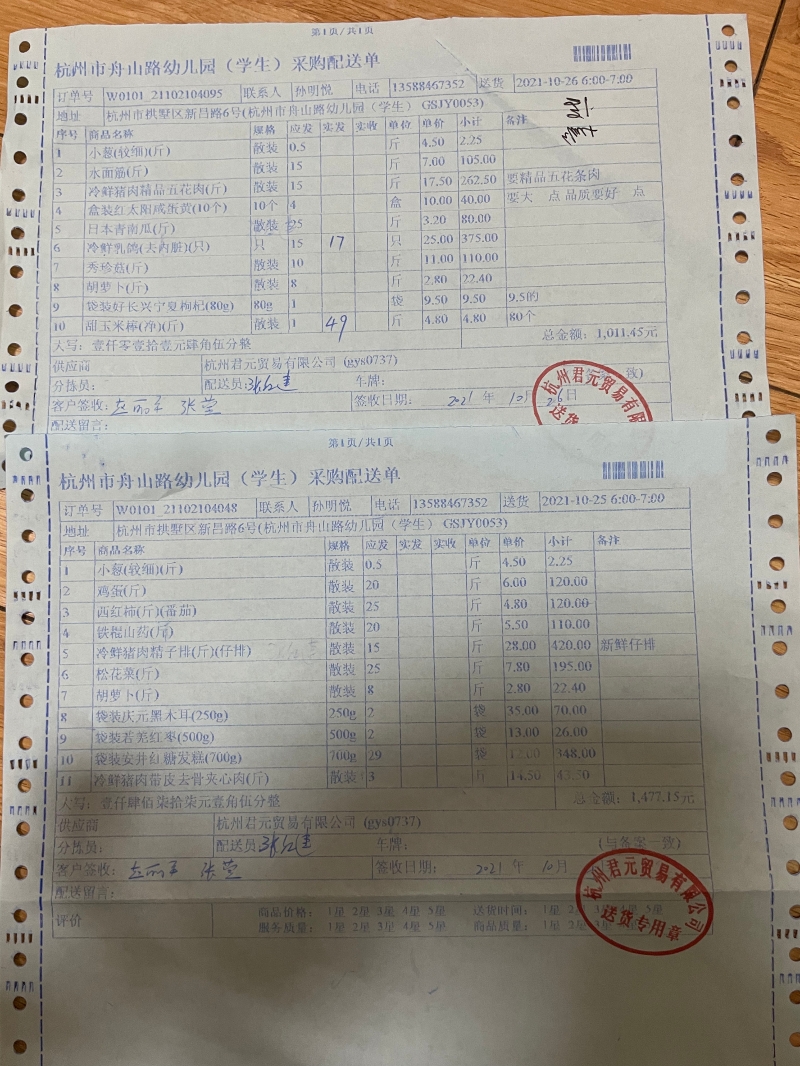 第1页/共1页
杭州市舟山路幼儿园（学生）采购配送单
订单号 W0101_21102104095 联系人 孙明悦 电话 13588467352 送货 2021-10-26 6:00-7:00
地址 杭州市拱墅区新昌路6号(杭州市舟山路幼儿园（学生）GSJY0053)
序号 商品名称 规格 应发 实发 实收 单位 单价 小计 备注
1 小葱(较细)(斤) 散装 0.5 斤 4.50 2.25
2 水面筋(斤) 散装 15 斤 7.00 105.00
3 冷鲜猪肉精品五花肉(斤) 散装 15 斤 17.50 262.50 要精品五花条肉
4 盒装红太阳咸蛋黄(10个) 10个 4 盒 10.00 40.00 要大 点 品质要好 点
5 日本青南瓜(斤) 散装 25 斤 3.20 80.00
6 冷鲜乳鸽(去内脏)(只) 只 15 17 只 25.00 375.00
7 秀珍菇(斤) 散装 10 斤 11.00 110.00
8 胡萝卜(斤) 散装 8 斤 2.80 22.40
9 袋装好长兴宁夏枸杞(80g) 80g 1 袋 9.50 9.50 9.5的
10 甜玉米棒(净)(斤) 散装 1 49 斤 4.80 4.80 80个
大写：壹仟零壹拾壹元肆角伍分整 总金额：1,011.45元
供应商 杭州君元贸易有限公司 (gys0737)
分拣员： 配送员： 车牌： 致)
客户签收： 张莹 签收日期： 2021 年 10月 26日
配送留言：
杭州君元贸易有限
送货
第1页/共1页
杭州市舟山路幼儿园（学生）采购配送单
订单号 W0101_21102104048 联系人 孙明悦 电话 13588467352 送货 2021-10-25 6:00-7:00
地址 杭州市拱墅区新昌路6号(杭州市舟山路幼儿园（学生）GSJY0053)
序号 商品名称 规格 应发 实发 实收 单位 单价 小计 备注
1 小葱(较细)(斤) 散装 0.5 斤 4.50 2.25
2 鸡蛋(斤) 散装 20 斤 6.00 120.00
3 西红柿(斤)(番茄) 散装 25 斤 4.80 120.00
4 铁棍山药(斤) 散装 20 斤 5.50 110.00
5 冷鲜猪肉精子排(斤)(仔排) 散装 15 斤 28.00 420.00 新鲜仔排
6 松花菜(斤) 散装 25 斤 7.80 195.00
7 胡萝卜(斤) 散装 8 斤 2.80 22.40
8 袋装庆元黑木耳(250g) 250g 2 袋 35.00 70.00
9 袋装若羌红枣(500g) 500g 2 袋 13.00 26.00
10 袋装安井红糖发糕(700g) 700g 29 袋 12.00 348.00
11 冷鲜猪肉带皮去骨夹心肉(斤) 散装 3 斤 14.50 43.50
大写：壹仟肆佰柒拾柒元壹角伍分整 总金额：1,477.15元
供应商 杭州君元贸易有限公司 (gys0737)
分拣员： 配送员： 车牌： (与备案一致)
客户签收： 张莹 签收日期： 2021 年 10月
配送留言：
评价 商品价格： 1星 2星 3星 4星 5星 送货时间： 1星 2星 3星 4星 5星
服务质量： 1星 2星 3星 4星 5星 商品质量： 1星 2星 3星 4星 5星
杭州君元贸易有限公司
送货专用章